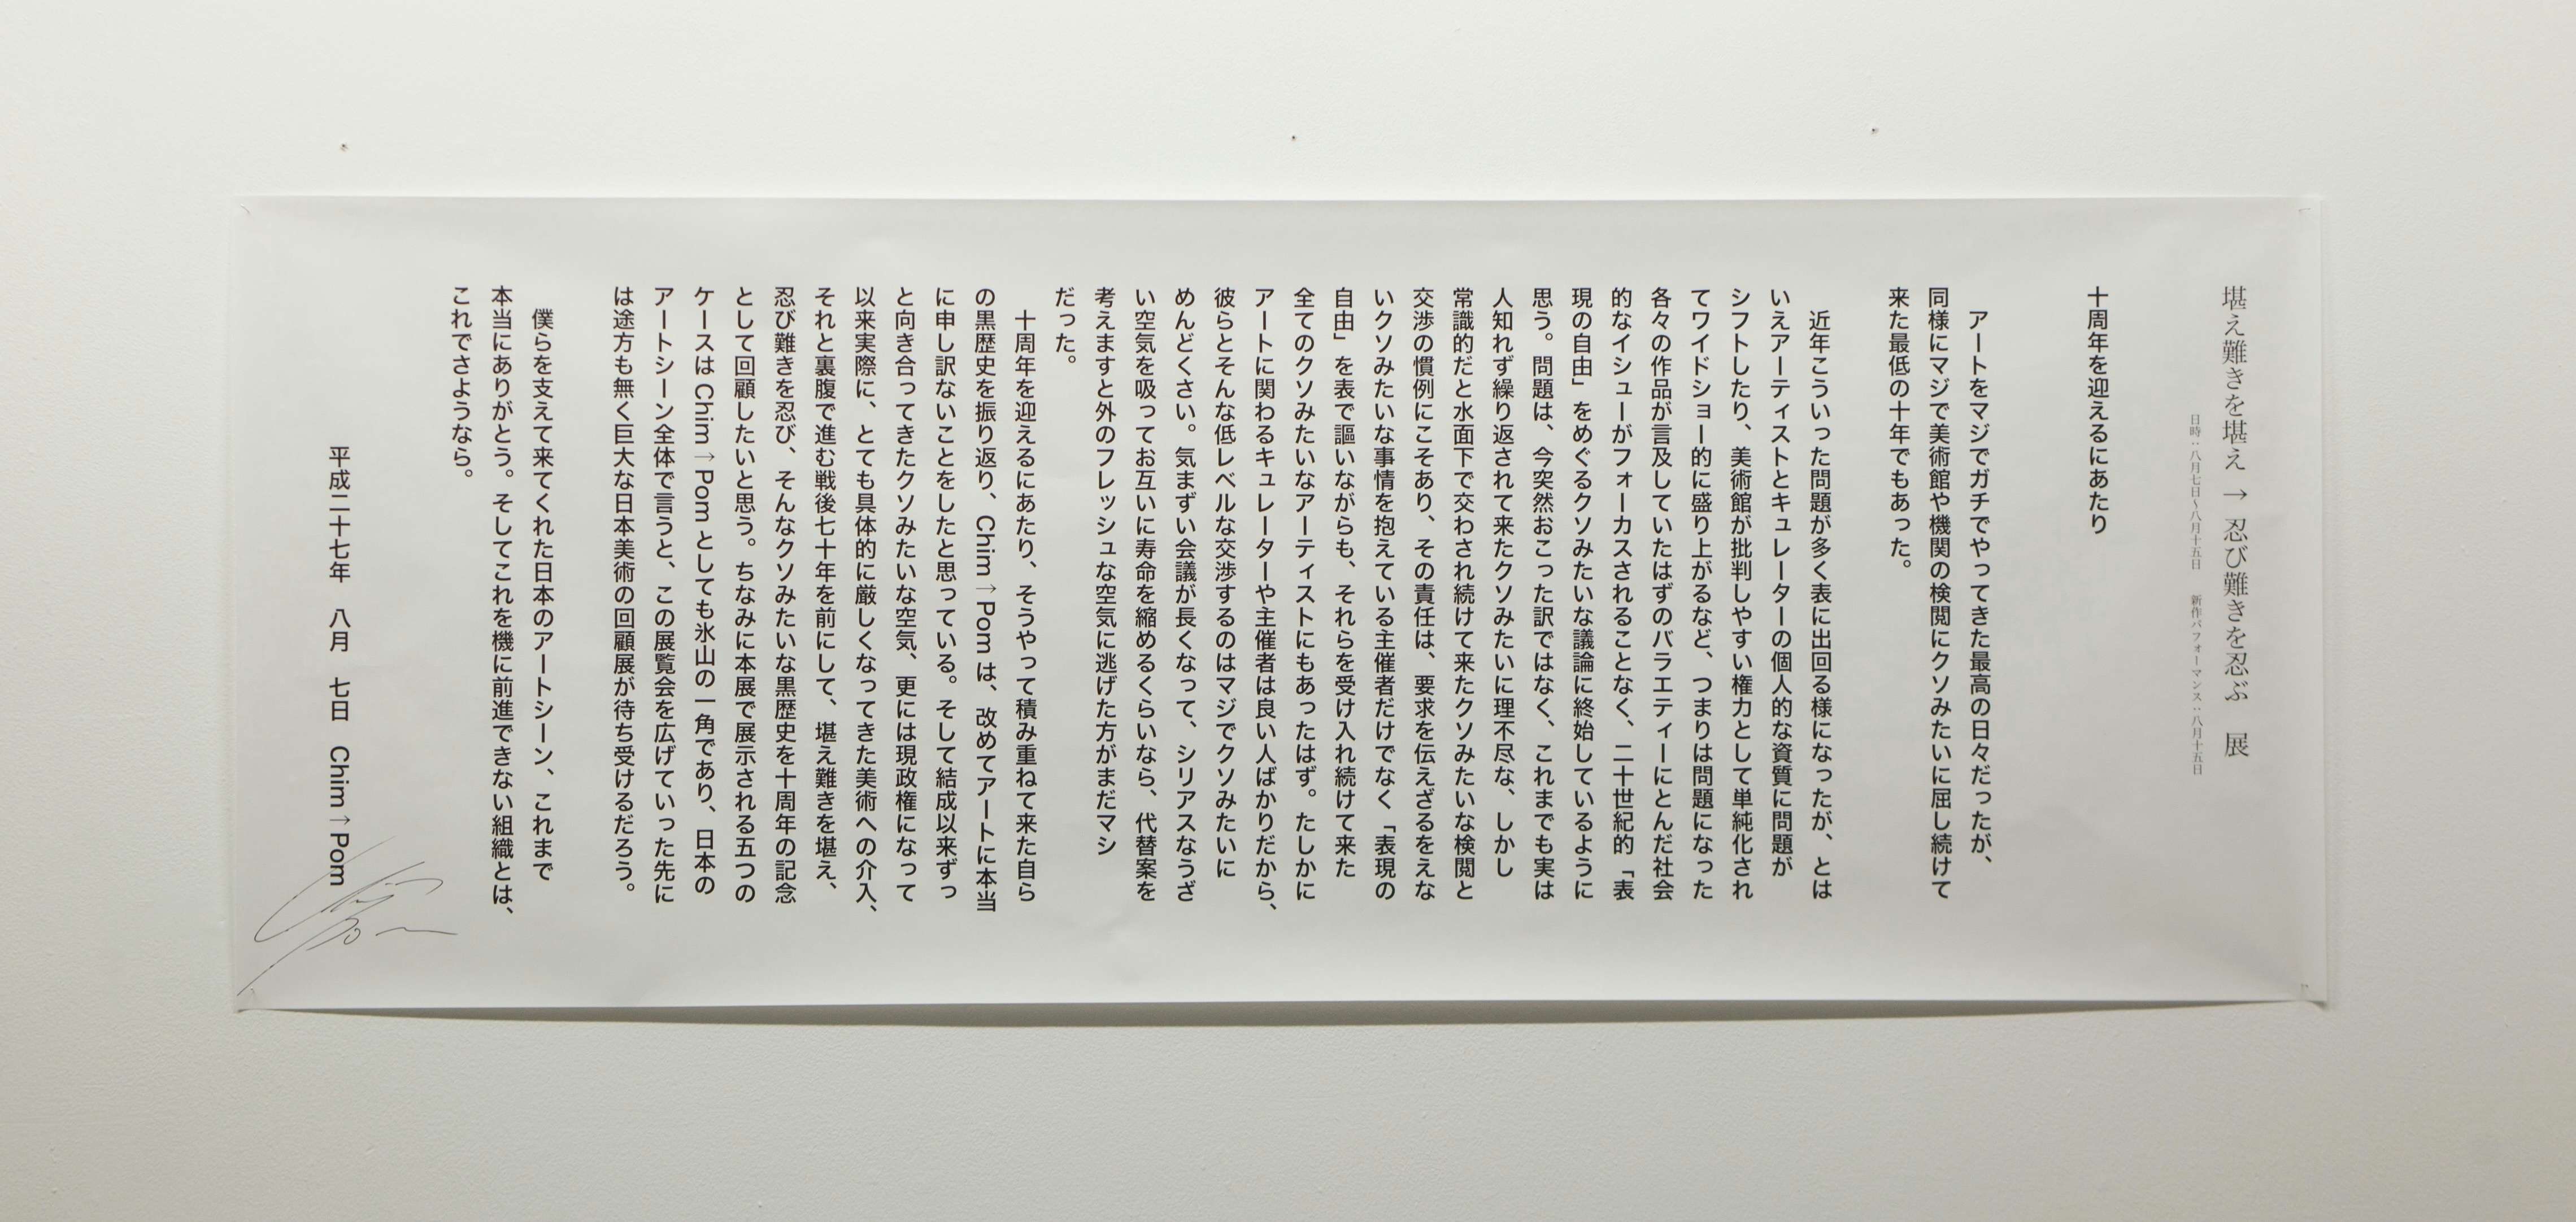 堪え難きを堪え → 忍び難きを忍ぶ　展
日時：八月七日〜八月十五日　新作パフォーマンス：八月十五日
十周年を迎えるにあたり
アートをマジでガチでやってきた最高の日々だったが、
同様にマジで美術館や機関の検閲にクソみたいに屈し続けて
来た最低の十年でもあった。
近年こういった問題が多く表に出回る様になったが、とは
いえアーティストとキュレーターの個人的な資質に問題が
シフトしたり、美術館が批判しやすい権力として単純化され
てワイドショー的に盛り上がるなど、つまりは問題になった
各々の作品が言及していたはずのバラエティーにとんだ社会
的なイシューがフォーカスされることなく、二十世紀的「表
現の自由」をめぐるクソみたいな議論に終始しているように
思う。問題は、今突然おこった訳ではなく、これまでも実は
人知れず繰り返されて来たクソみたいに理不尽な、しかし
常識的だと水面下で交わされ続けて来たクソみたいな検閲と
交渉の慣例にこそあり、その責任は、要求を伝えざるをえな
いクソみたいな事情を抱えている主催者だけでなく「表現の
自由」を表で謳いながらも、それらを受け入れ続けて来た
全てのクソみたいなアーティストにもあったはず。たしかに
アートに関わるキュレーターや主催者は良い人ばかりだから、
彼らとそんな低レベルな交渉するのはマジでクソみたいに
めんどくさい。気まずい会議が長くなって、シリアスなうざ
い空気を吸ってお互いに寿命を縮めるくらいなら、代替案を
考えますと外のフレッシュな空気に逃げた方がまだマシ
だった。
十周年を迎えるにあたり、そうやって積み重ねて来た自ら
の黒歴史を振り返り、Chim↑Pom は、改めてアートに本当
に申し訳ないことをしたと思っている。そして結成以来ずっ
と向き合ってきたクソみたいな空気、更には現政権になって
以来実際に、とても具体的に厳しくなってきた美術への介入、
それと裏腹で進む戦後七十年を前にして、堪え難きを堪え、
忍び難きを忍び、そんなクソみたいな黒歴史を十周年の記念
として回顧したいと思う。ちなみに本展で展示される五つの
ケースは Chim↑Pom としても氷山の一角であり、日本の
アートシーン全体で言うと、この展覧会を広げていった先に
は途方も無く巨大な日本美術の回顧展が待ち受けるだろう。
僕らを支えて来てくれた日本のアートシーン、これまで
本当にありがとう。そしてこれを機に前進できない組織とは、
これでさようなら。
平成二十七年　八月　七日　Chim↑Pom